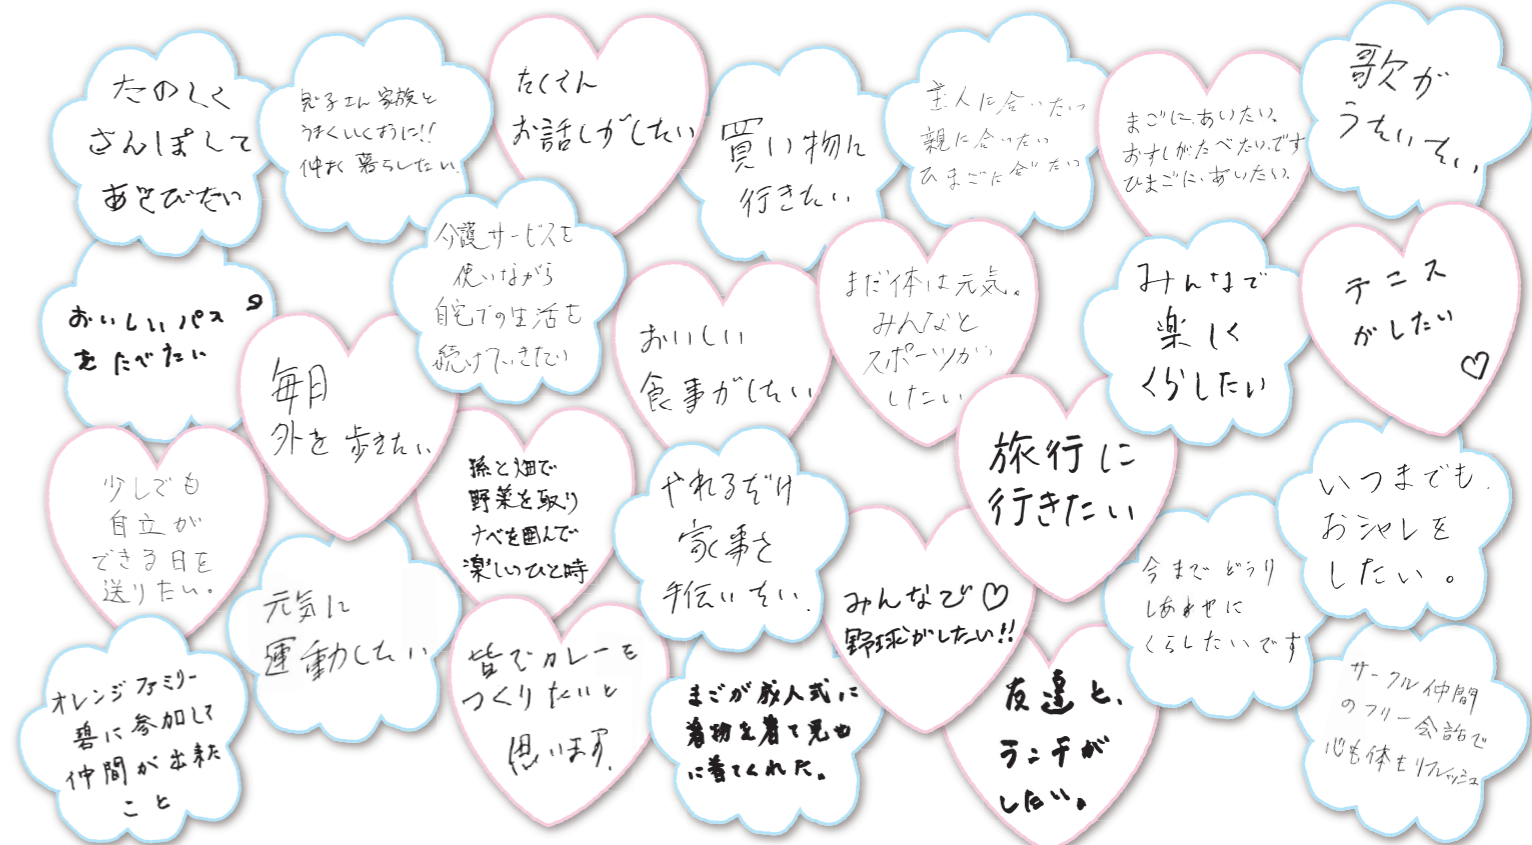 たのしく
さんぽして
あそびたい
息子さん家族と
うまくいくように!!
仲よく暮らしたい.
たくさん
お話しがしたい
買い物に
行きたい
主人に会いたい
親に会いたい
ひまごに会いたい
まごに、あいたい。
おすしがたべたいです
ひまごに、あいたい.
歌が
うたいたい
おいしいパスタ
をたべたい
毎日
外を歩きたい
介護サービスを
使いながら
自宅での生活を
続けていきたい
おいしい
食事がしたい
まだ体は元気。
みんなと
スポーツが
したい
みんなで
楽しく
くらしたい
テニス
がしたい
♡
少しでも
自立が
できる日を
送りたい。
元気に
運動したい
孫と畑で
野菜を取り
ナベを囲んで
楽しいひと時
やれるだけ
家事を
手伝いたい.
旅行に
行きたい
みんなで♡
野球がしたい!!
今までどうり
しあわせに
くらしたいです
いつまでも.
おシャレを
したい。
オレンジファミリー
碧に参加して
仲間が出来た
こと
皆でカレーを
つくりたいと
思います.
まごが成人式に
着物を着て見せ
に着てくれた。
友達と、
ランチが
したい。
サークル仲間
のフリー会話で
心も体もリフレッシュ